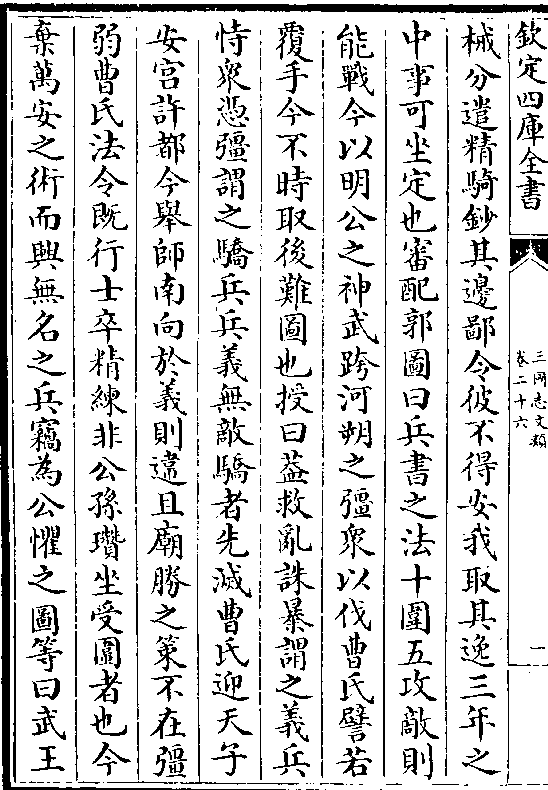 欽定四庫全書
三國志文類
卷二十六
一
械分遣精騎鈔其邊鄙令彼不得安我取其逸三年之
中事可坐定也審配郭圖曰兵書之法十圍五攻敵則
能戰今以明公之神武跨河朔之彊衆以伐曹氏譬若
覆手今不時取後難圖也授曰葢救亂誅暴謂之義兵
恃衆憑彊謂之驕兵兵義無敵驕者先滅曹氏迎天子
安宫許都今舉師南向於義則違且廟勝之策不在彊
弱曹氏法令既行士卒精練非公孫瓚坐受圍者也今
棄萬安之術而興無名之兵竊為公懼之圖等曰武王